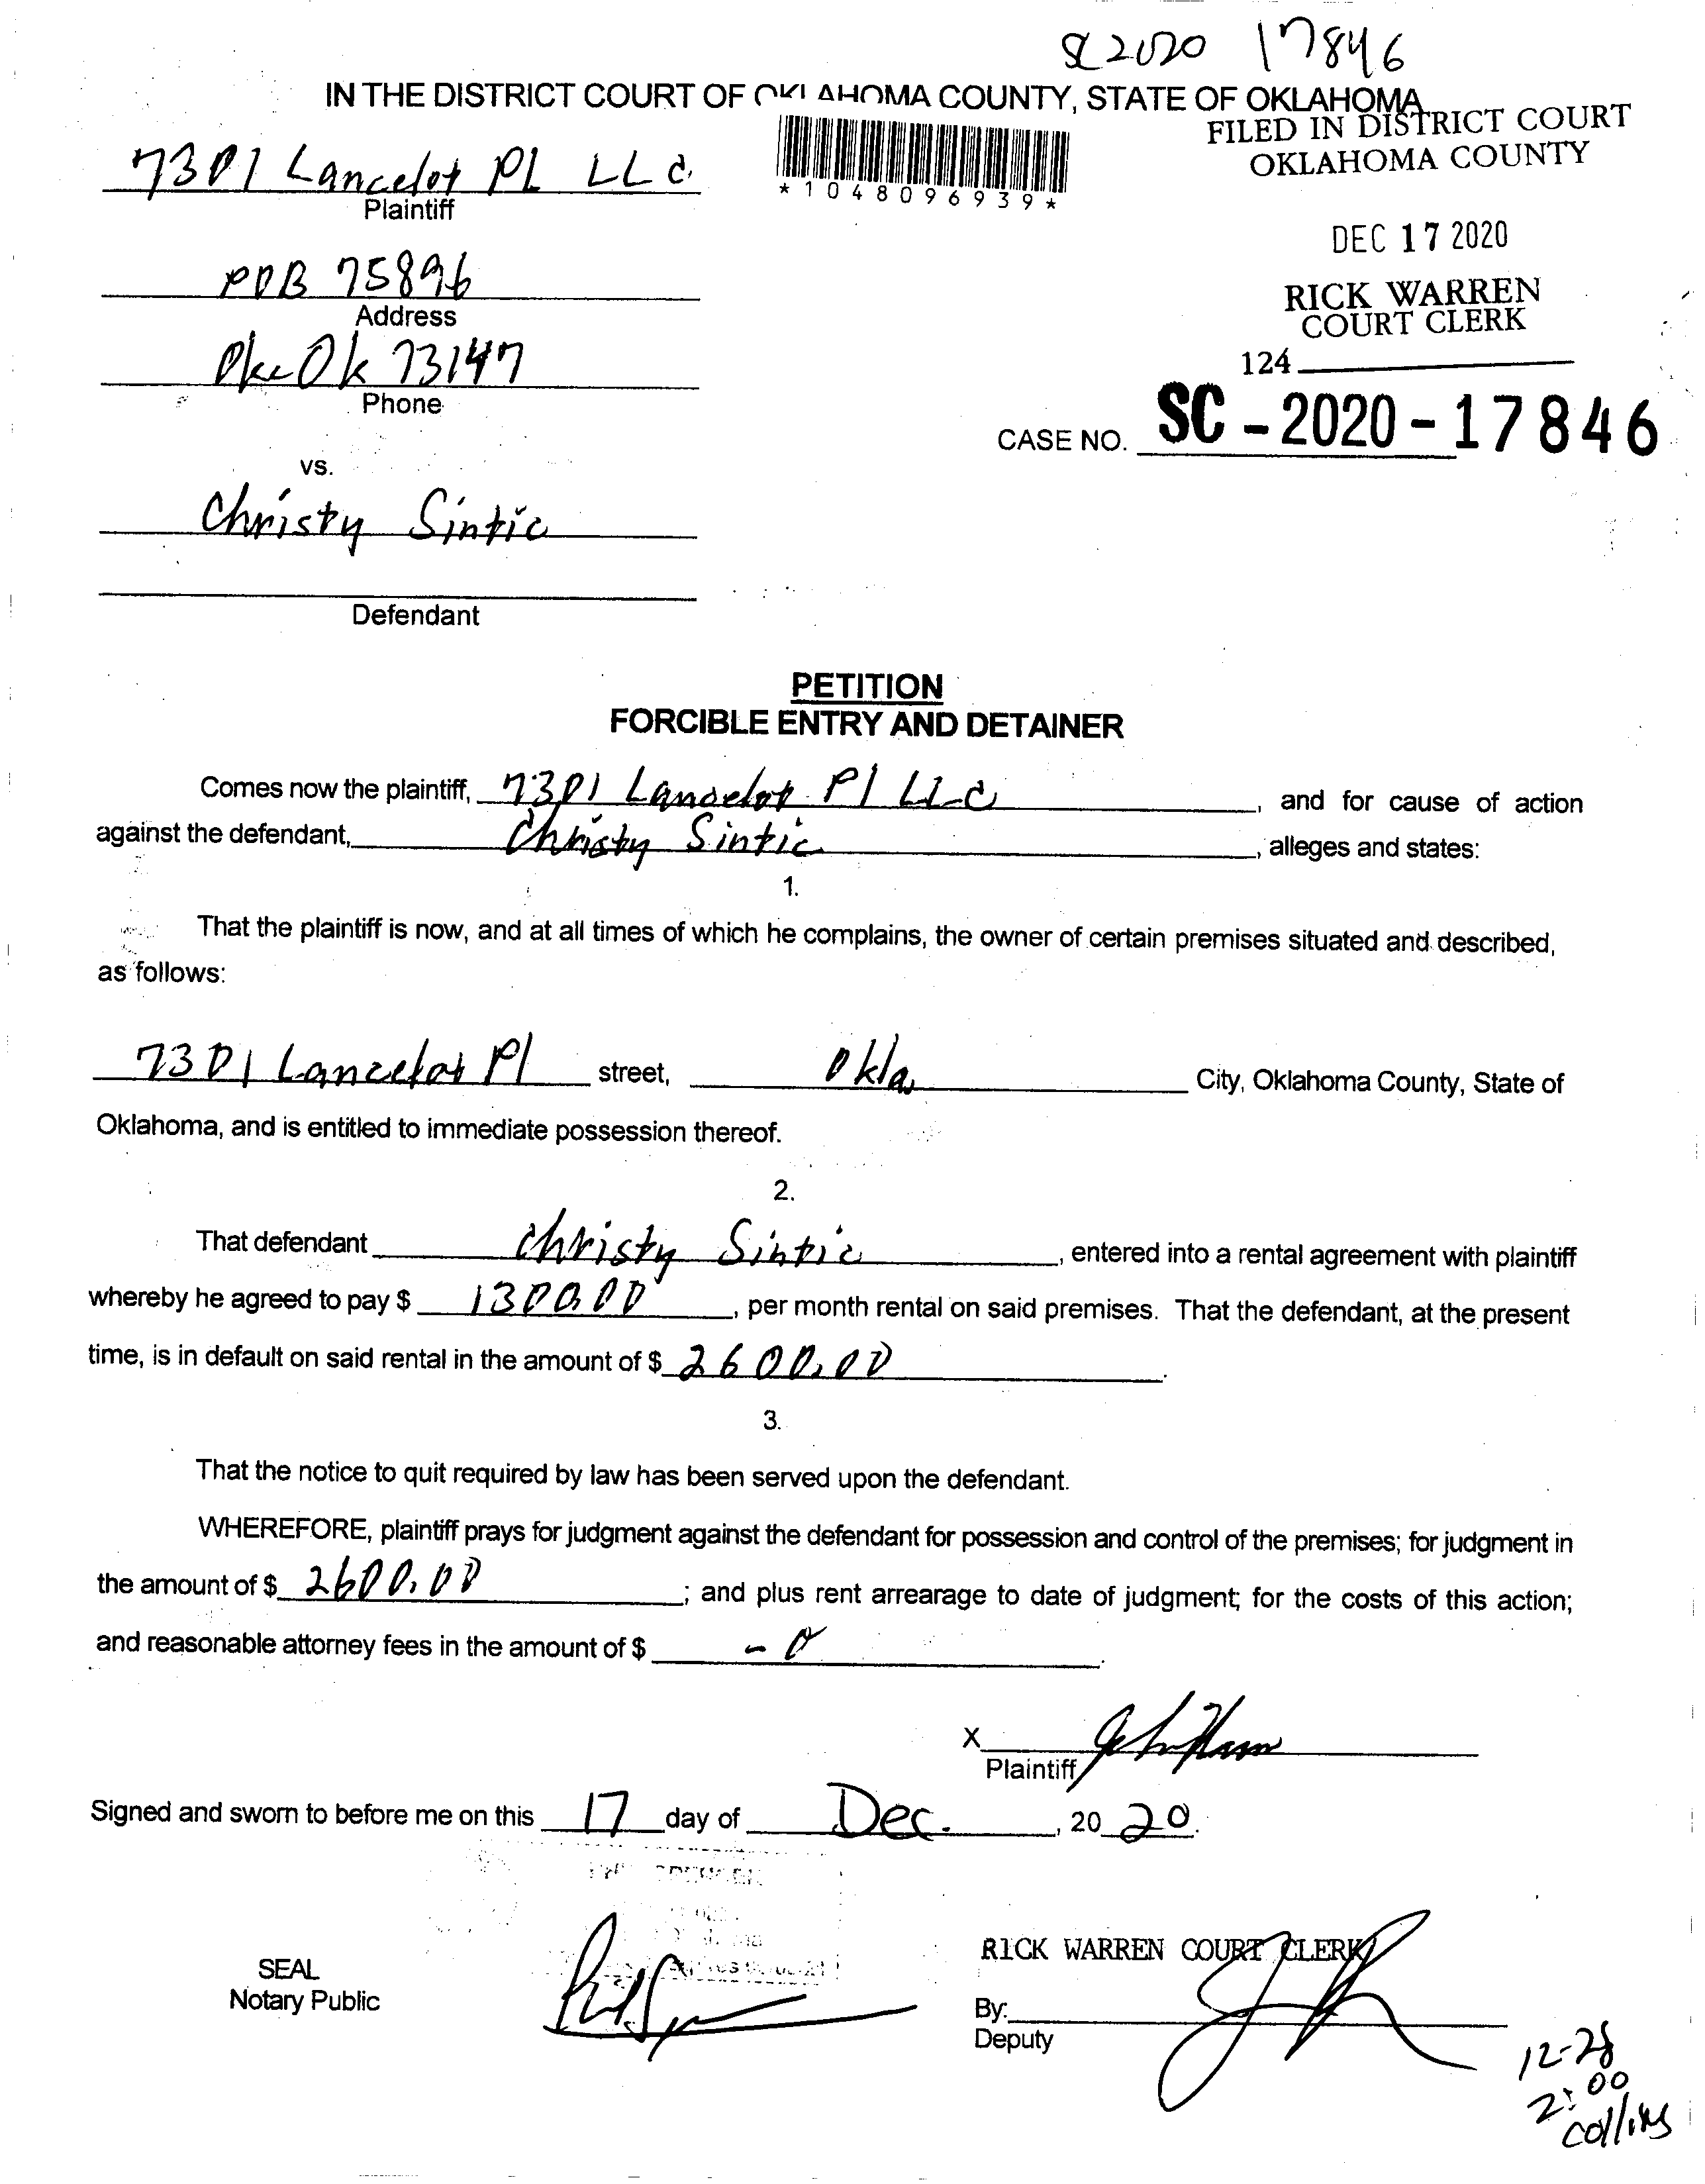 SC 2020 17846
IN THE DISTRICT COURT OF OKLAHOMA COUNTY, STATE OF OKLAHOMA
FILED IN DISTRICT COURT
OKLAHOMA COUNTY
7301 Lancelot PL LLC.
Plaintiff
*1048096939*
DEC 17 2020
POB 75896
Address
RICK WARREN
COURT CLERK
Okc Ok 73147
Phone
124
CASE NO. SC - 2020 - 17846
vs.
Christy Sintic
Defendant
PETITION
FORCIBLE ENTRY AND DETAINER
Comes now the plaintiff, 7301 Lancelot Pl LLC, and for cause of action
against the defendant, Christy Sintic, alleges and states:
1.
That the plaintiff is now, and at all times of which he complains, the owner of certain premises situated and described,
as follows:
7301 Lancelot Pl street, Okla, City, Oklahoma County, State of
Oklahoma, and is entitled to immediate possession thereof.
2.
That defendant Christy Sintic, entered into a rental agreement with plaintiff
whereby he agreed to pay $ 1300.00, per month rental on said premises. That the defendant, at the present
time, is in default on said rental in the amount of $ 2600.00.
3.
That the notice to quit required by law has been served upon the defendant.
WHEREFORE, plaintiff prays for judgment against the defendant for possession and control of the premises; for judgment in
the amount of $ 2600.00; and plus rent arrearage to date of judgment; for the costs of this action;
and reasonable attorney fees in the amount of $ - 0.
X
Plaintiff
Signed and sworn to before me on this 17 day of Dec., 20 20.
SEAL
Notary Public
RICK WARREN COURT CLERK
By:
Deputy
12-28
2:00
Collins